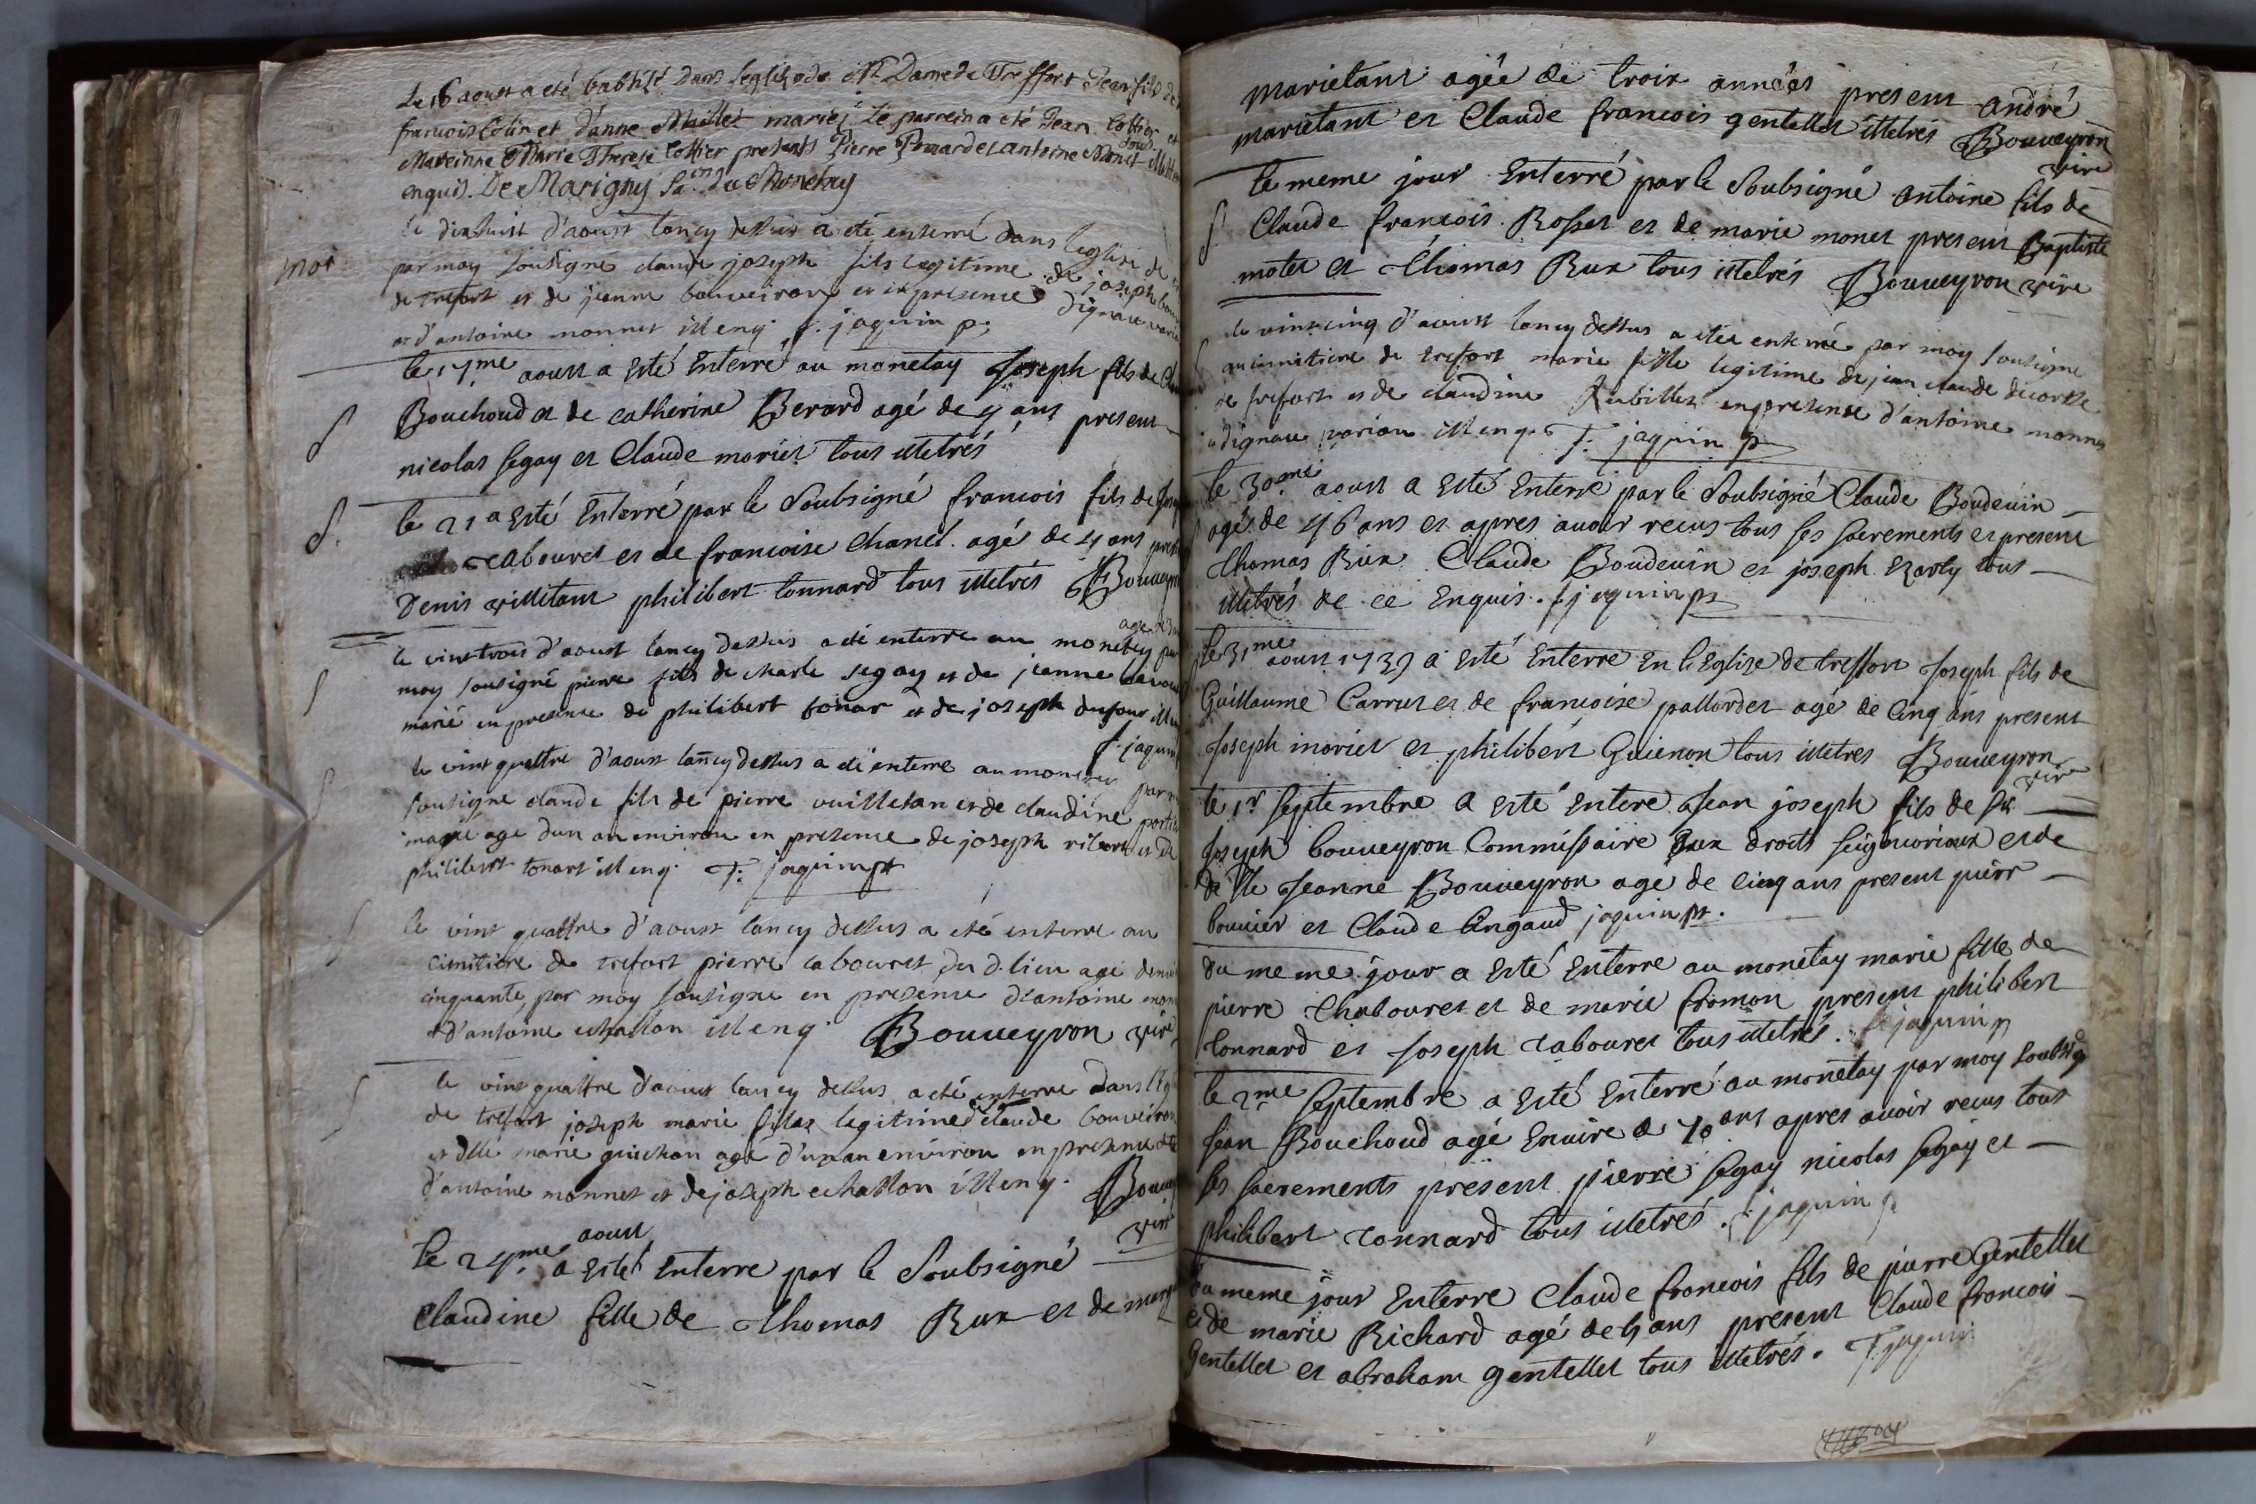 Le 16 aoust a eté babtizé dans l'eglise de Nt Dame de Treffort Jean fils de
francois Colin et d'anne Muillet mariez Le parrein a été Jean Cottier et
Mareinne Marie Therese Cottier presents Pierre Perrardet antoine Monet
enquis. De Marigny Sa.in de Monetay
le dixhuit d'aoust lancy dessus a eté enterré dans l'eglise de
mor
par moy Sousigné claude joseph fils legitime de joseph
de trefort et de jeanne bouveiron et en presence dignace varion
et d'antoine monnet ill enq. f. jaquin p.
le 17me aoust a Esté Enterré au monetay Joseph fils de
Bouchoud et de catherine Berard agé de 4 ans present
nicolas segay et Claude moriet tous illetrés
le 21 a Esté Enterré par le Soubsigné francois fils de
Cabouret et de francoise Chanel agé de 4 ans
Denis villetant philibert tonnard tous illetrés Bouveyron
le vint trois d'aoust lancy dessus a eté enterre au monetey
moy sousigné pierre fils de charle segay et de jeanne
marié en presence de philibert tonar et de joseph dufour
f. jaquin
le vint quattre d'aoust lancy dessus a eté enterre au monetey par
sousigne claude fils de pierre vuilletan et de claudine
marié age d'un an environ en presence de joseph et de
philibert tonart ill enq. F. jaquin pt
le vint quattre d'aoust lancy dessus a eté enterre au
cimitiere de trefort pierre cabouret du d. lieu agé
cinquante par moy sousigne en presence d'antoine
et d'antoine echallon ill enq. Bouveyron vire
le vint quattre d'aoust lancy dessus a eté enterre dans
de trefort joseph marie fils legitime de claude bouveiron
et dlle marie guichon age d'un an environ en presence
d'antoine monnet et de joseph echallon ill enq.
vire
le 24me aoust a Esté Enterre par le Soubsigné
Claudine fille de thomas Rux et de
marietant agée de trois années present andré
marietant et Claude francois gentellet illetrés Bouveyron
vire
le meme jour Enterré par le Soubsigné antoine fils de
Claude francois Rosset et de marie monet present Baptiste
motet et thomas Rux tous illetrés Bouveyron vire
le vint cinq d'aoust lancy dessus a etée enterrée par moy sousigne
au cimitiere de trefort marie fille legitime de jean claude
de trefort et de claudine Rubillet en presence d'antoine monnet
dignace varion ill enq. F. jaquin p
le 30me aoust a Esté Enterré par le Soubsigné Claude Boudevin
agé de 46 ans et apres avoir recus tous ses sacrements et present
thomas Rux Claude Boudevin et joseph tous
illetrés de ce Enquis. f jaquin pt
le 31me aoust 1739 a Esté Enterre En l'Eglise de treffort Joseph fils de
Guillaume Carrut et de francoise pallordet agé de cinq ans present
Joseph moriet et philibert Guienon tous illetres Bouveyron
vire
le 1r septembre a Esté Entere Jean joseph fils de Sr
Joseph bouveyron Commissaire aux droits seigneuriaux et de
dlle Jeanne Bouveyron age de cinq ans present pierr
bouvier et Claude Angaud jaquin pt.
du meme jour a Esté Enterre au monetay marie fille de
pierre Chabouret et de marie fromon present philibert
tonnard et Joseph cabouret tous illetrés. f jaquin p
le 2me septembre a Esté Enterré au monetay par moy soubsig
Jean Bouchoud agé Envire de 70 ans apres avoir recus tous
ses sacrements present pierre segay nicolas segay et
philibert tonnard tous illetrés. f. jaquin p.
du meme jour Enterre Claude francois fils de pierre Gentellet
et de marie Richard agé de 5 ans present Claude francois
Gentellet et abraham gentellet tous illetrés. F. jaquin